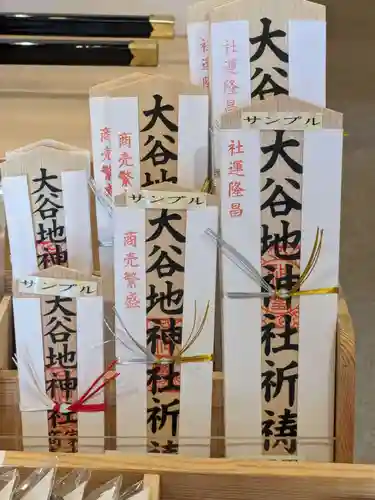 大谷
社運隆
大谷
商売繁
大谷地神
サンプル
社運隆昌
大谷地神社祈祷
サンプル
商売繁盛
大谷地神社祈
サンプル
大谷地神社